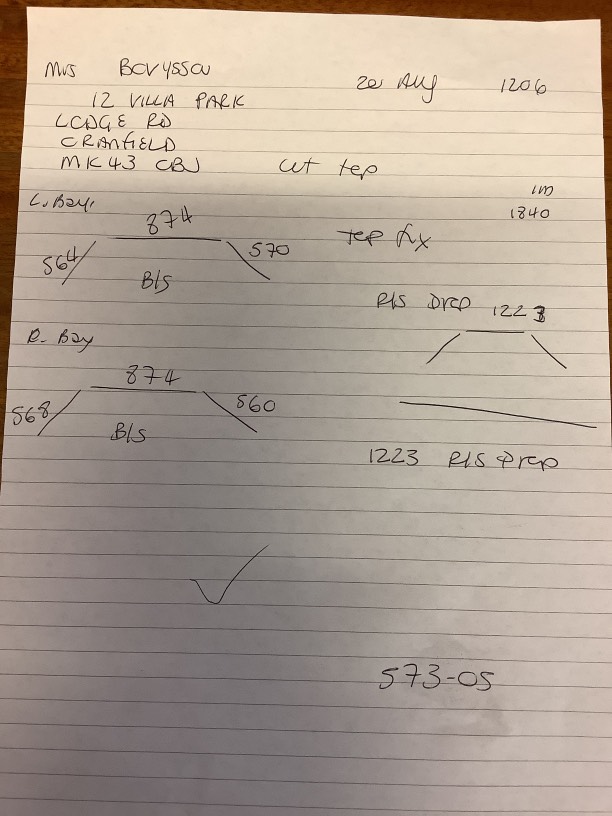 Mrs Boryssow 20 Aug 1206
12 VILLA PARK
LODGE RD
CRANFIELD
MK43 OBJ Cut top
L. Bay. 1840
874
564 570 top fix
B/S
R/S Drop 1223
R. Bay
874
568 560
B/S
1223 R/S Drop
573-05